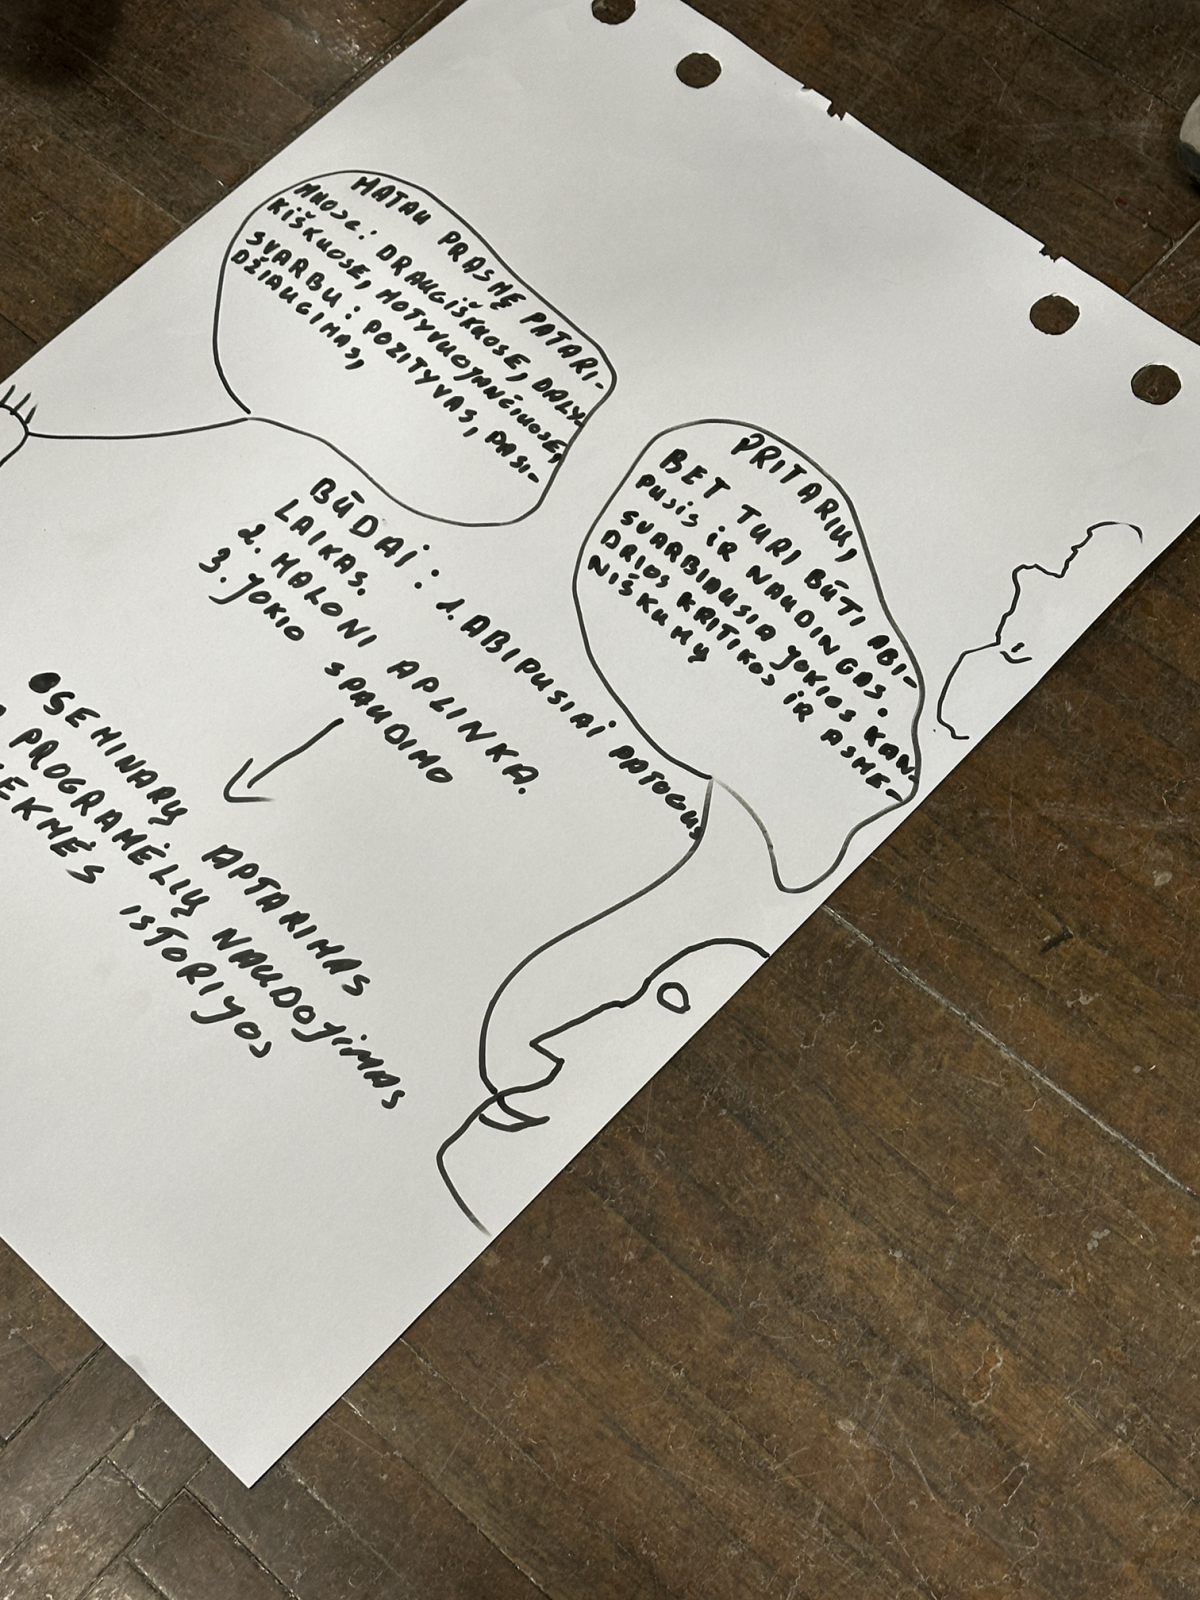 MATAU PRASMĘ PATARI-
MUOSE: DRAUGIŠKUOSE, DALY-
KIŠKUOSE, MOTYVUOJANČIUOSE,
SVARBU: POZITYVAS, PASI-
DŽIAUGIMAS,
PRITARIU,
BET TURI BŪTI ABI-
PUSIS IR NAUDINGAS.
SVARBIAUSIA JOKIOS KAN-
DRIOS KRITIKOS IR ASME-
NIŠKUMŲ
BŪDAI: 1. ABIPUSIAI PATOGUS
LAIKAS.
2. MALONI APLINKA.
3. JOKIO SPAUDIMO
SEMINARŲ APTARIMAS
PROGRAMĖLIŲ NAUDOJIMAS
EKMĖS ISTORIJOS